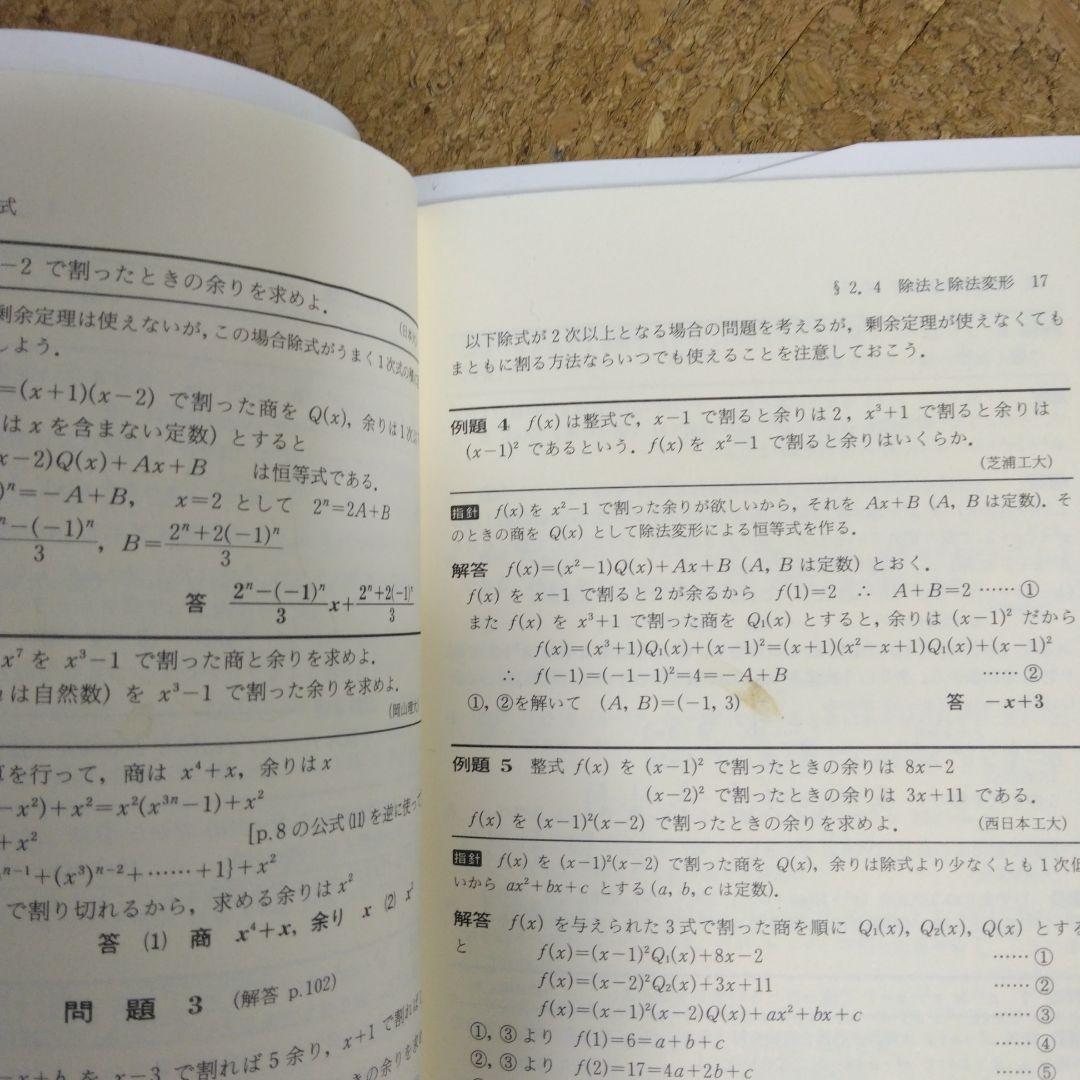 式
−2 で割ったときの余りを求めよ.
剰余定理は使えないが, この場合除式がうまく1次式の
しよう.
=(x+1)(x−2) で割った商を Q(x), 余りは1次
はxを含まない定数) とすると
x−2)Q(x)+Ax+B は恒等式である.
)ⁿ=−A+B, x=2 として 2ⁿ=2A+B
2ⁿ−(−1)ⁿ/3, B=2ⁿ+2(−1)ⁿ/3
答 2ⁿ−(−1)ⁿ/3 x+2ⁿ+2(−1)ⁿ/3
x⁷ を x³−1 で割った商と余りを求めよ.
は自然数) を x³−1 で割った余りを求めよ.
(岡山理大)
を行って, 商は x⁴+x, 余りは x
−x²)+x²=x²(x³ⁿ−1)+x²
+x² [p.8 の公式(11)を逆に使っ
ⁿ⁻¹+(x³)ⁿ⁻²+……+1}+x²
で割り切れるから, 求める余りは x²
答 (1) 商 x⁴+x, 余り x (2) x²
問題 3 (解答 p.102)
を x−3 で割れば5余り, x+1 で割れば
§2.4 除法と除法変形 17
以下除式が2次以上となる場合の問題を考えるが, 剰余定理が使えなくても
まともに割る方法ならいつでも使えることを注意しておこう.
例題 4 f(x) は整式で, x−1 で割ると余りは2, x³+1 で割ると余りは
(x−1)² であるという. f(x) を x²−1 で割ると余りはいくらか.
(芝浦工大)
指針 f(x) を x²−1 で割った余りが欲しいから, それを Ax+B (A, B は定数). そ
のときの商を Q(x) として除法変形による恒等式を作る.
解答 f(x)=(x²−1)Q(x)+Ax+B (A, B は定数) とおく.
f(x) を x−1 で割ると2が余るから f(1)=2 ∴ A+B=2 …… ①
また f(x) を x³+1 で割った商を Q₁(x) とすると, 余りは (x−1)² だから
f(x)=(x³+1)Q₁(x)+(x−1)²=(x+1)(x²−x+1)Q₁(x)+(x−1)²
∴ f(−1)=(−1−1)²=4=−A+B …… ②
①, ②を解いて (A, B)=(−1, 3) 答 −x+3
例題 5 整式 f(x) を (x−1)² で割ったときの余りは 8x−2
(x−2)² で割ったときの余りは 3x+11 である.
f(x) を (x−1)²(x−2) で割ったときの余りを求めよ. (西日本工大)
指針 f(x) を (x−1)²(x−2) で割った商を Q(x), 余りは除式より少なくとも1次低
いから ax²+bx+c とする (a, b, c は定数).
解答 f(x) を与えられた3式で割った商を順に Q₁(x), Q₂(x), Q(x) とする
と f(x)=(x−1)²Q₁(x)+8x−2 …… ①
f(x)=(x−2)²Q₂(x)+3x+11 …… ②
f(x)=(x−1)²(x−2)Q(x)+ax²+bx+c …… ③
①, ③より f(1)=6=a+b+c …… ④
②, ③より f(2)=17=4a+2b+c …… ⑤